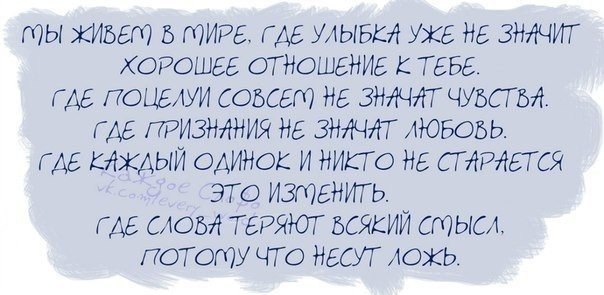 МЫ ЖИВЕМ В МИРЕ, ГДЕ УЛЫБКА УЖЕ НЕ ЗНАЧИТ
ХОРОШЕЕ ОТНОШЕНИЕ К ТЕБЕ.
ГДЕ ПОЦЕЛУИ СОВСЕМ НЕ ЗНАЧАТ ЧУВСТВА.
ГДЕ ПРИЗНАНИЯ НЕ ЗНАЧАТ ЛЮБОВЬ.
ГДЕ КАЖДЫЙ ОДИНОК И НИКТО НЕ СТАРАЕТСЯ
ЭТО ИЗМЕНИТЬ.
ГДЕ СЛОВА ТЕРЯЮТ ВСЯКИЙ СМЫСЛ,
ПОТОМУ ЧТО НЕСУТ ЛОЖЬ.